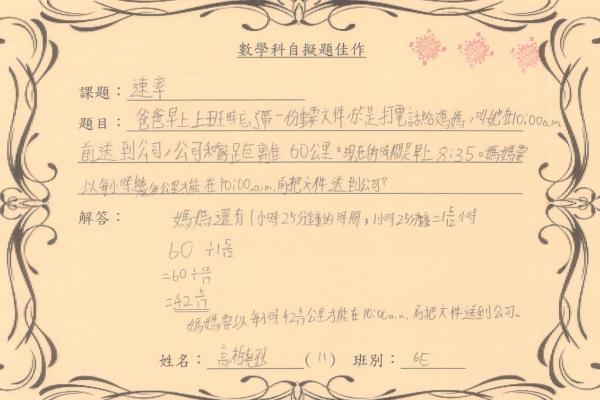 數學科自擬題佳作
課題：速率
題目：爸爸早上上班時忘了帶一份重要文件，於是打電話給媽媽，叫她在10:00a.m.
前送到公司，公司和家距離60公里。現在的時間是早上8:35。媽媽要
以每小時幾多公里才能在10:00a.m.前把文件送到公司?
解答：媽媽還有1小時25分鐘的時間，1小時25分鐘=1 5/12小時
60 ÷1 5/12
=60 ÷ 17/12
=42 6/17
媽媽要以每小時42 6/17公里才能在10:00a.m.前把文件送到公司。
姓名：高 (11) 班別：6E